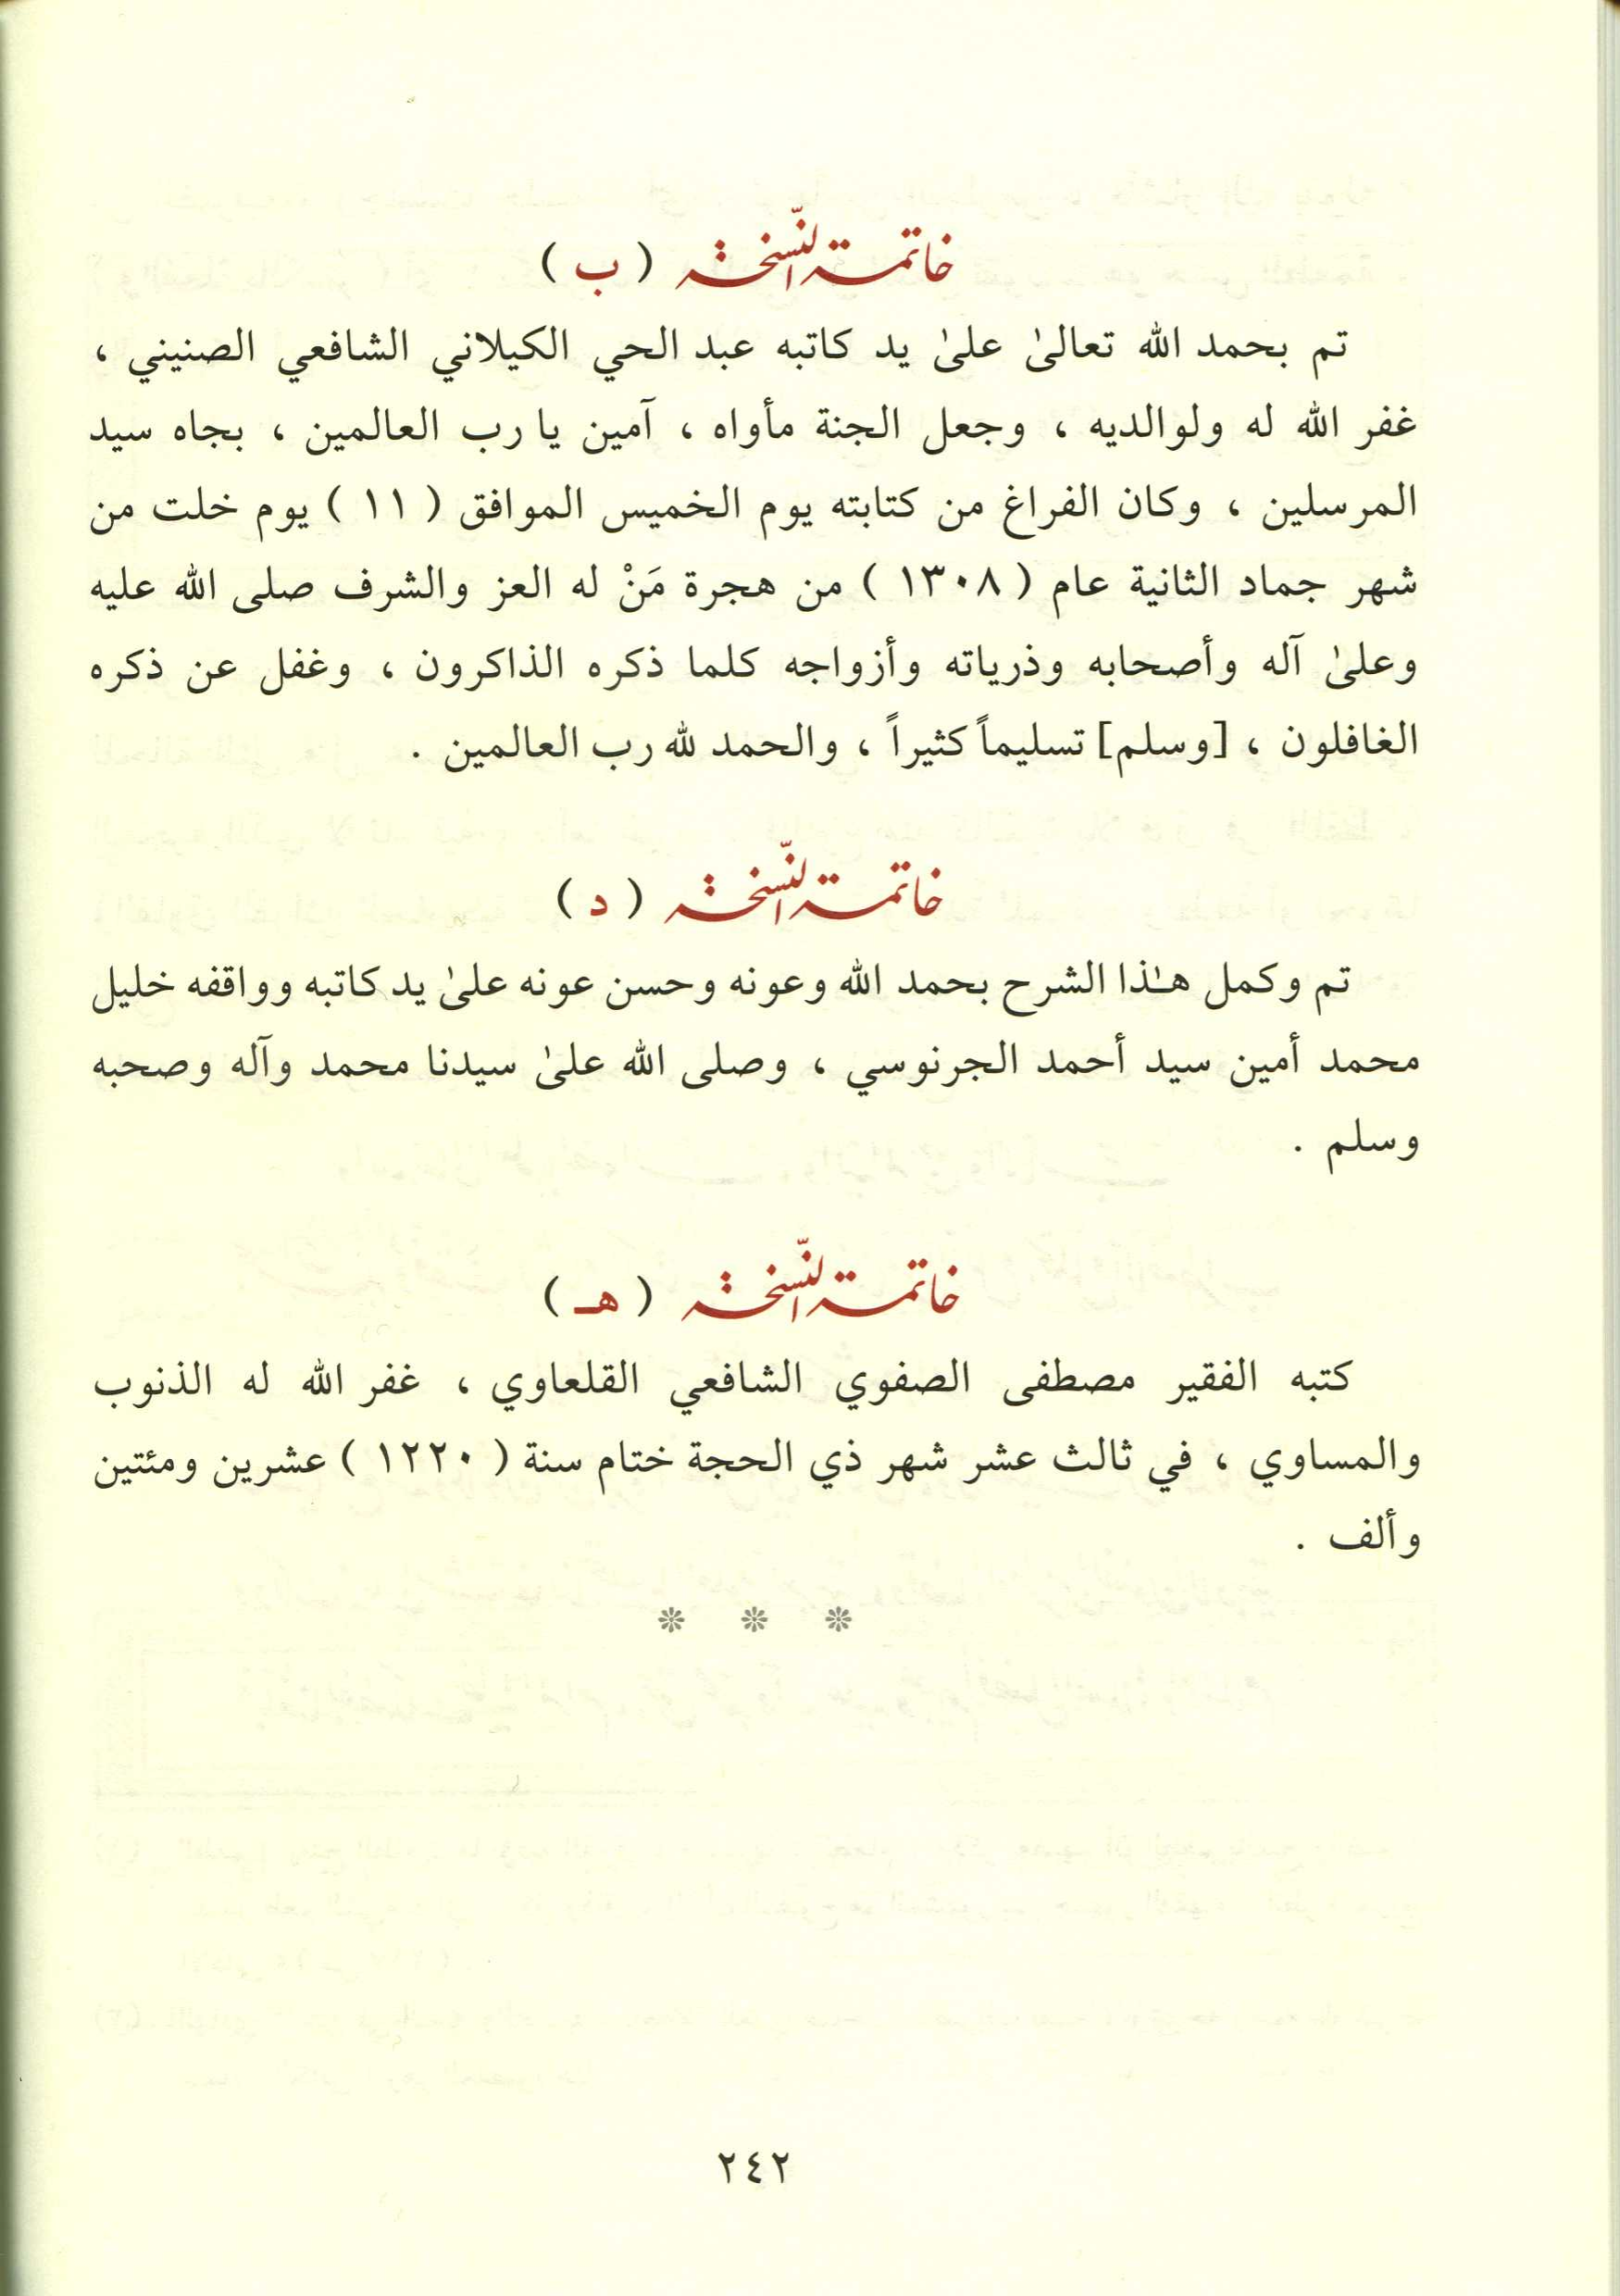 خاتمة النّسخة ( ب )
تم بحمد الله تعالىٰ علىٰ يد كاتبه عبد الحي الكيلاني الشافعي الصنيني ،
غفر الله له ولوالديه ، وجعل الجنة مأواه ، آمين يا رب العالمين ، بجاه سيد
المرسلين ، وكان الفراغ من كتابته يوم الخميس الموافق ( ١١ ) يوم خلت من
شهر جماد الثانية عام ( ١٣٠٨ ) من هجرة مَنْ له العز والشرف صلى الله عليه
وعلىٰ آله وأصحابه وذرياته وأزواجه كلما ذكره الذاكرون ، وغفل عن ذكره
الغافلون ، [وسلم] تسليماً كثيراً ، والحمد لله رب العالمين .
خاتمة النّسخة ( د )
تم وكمل هـٰذا الشرح بحمد الله وعونه وحسن عونه علىٰ يد كاتبه وواقفه خليل
محمد أمين سيد أحمد الجرنوسي ، وصلى الله علىٰ سيدنا محمد وآله وصحبه
وسلم .
خاتمة النّسخة ( هـ )
كتبه الفقير مصطفى الصفوي الشافعي القلعاوي ، غفر الله له الذنوب
والمساوي ، في ثالث عشر شهر ذي الحجة ختام سنة ( ١٢٢٠ ) عشرين ومئتين
وألف .
٢٤٢